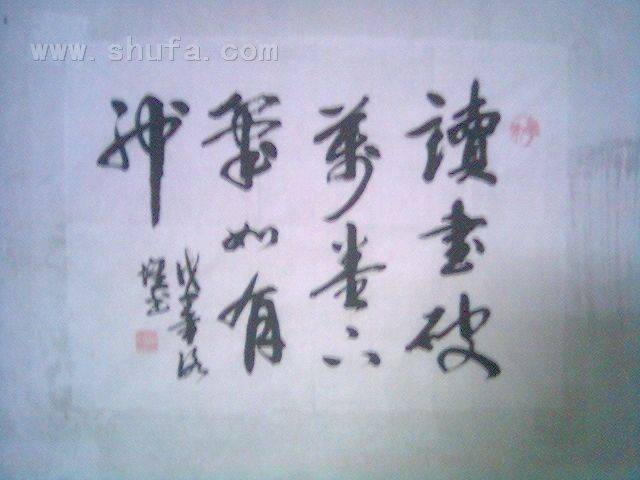 www.shufa.com
讀書破
萬卷下
筆如有
神